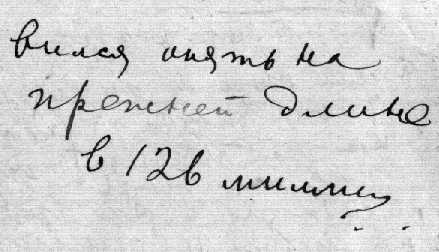 вился опять на
прежней длине
в 126 миллим